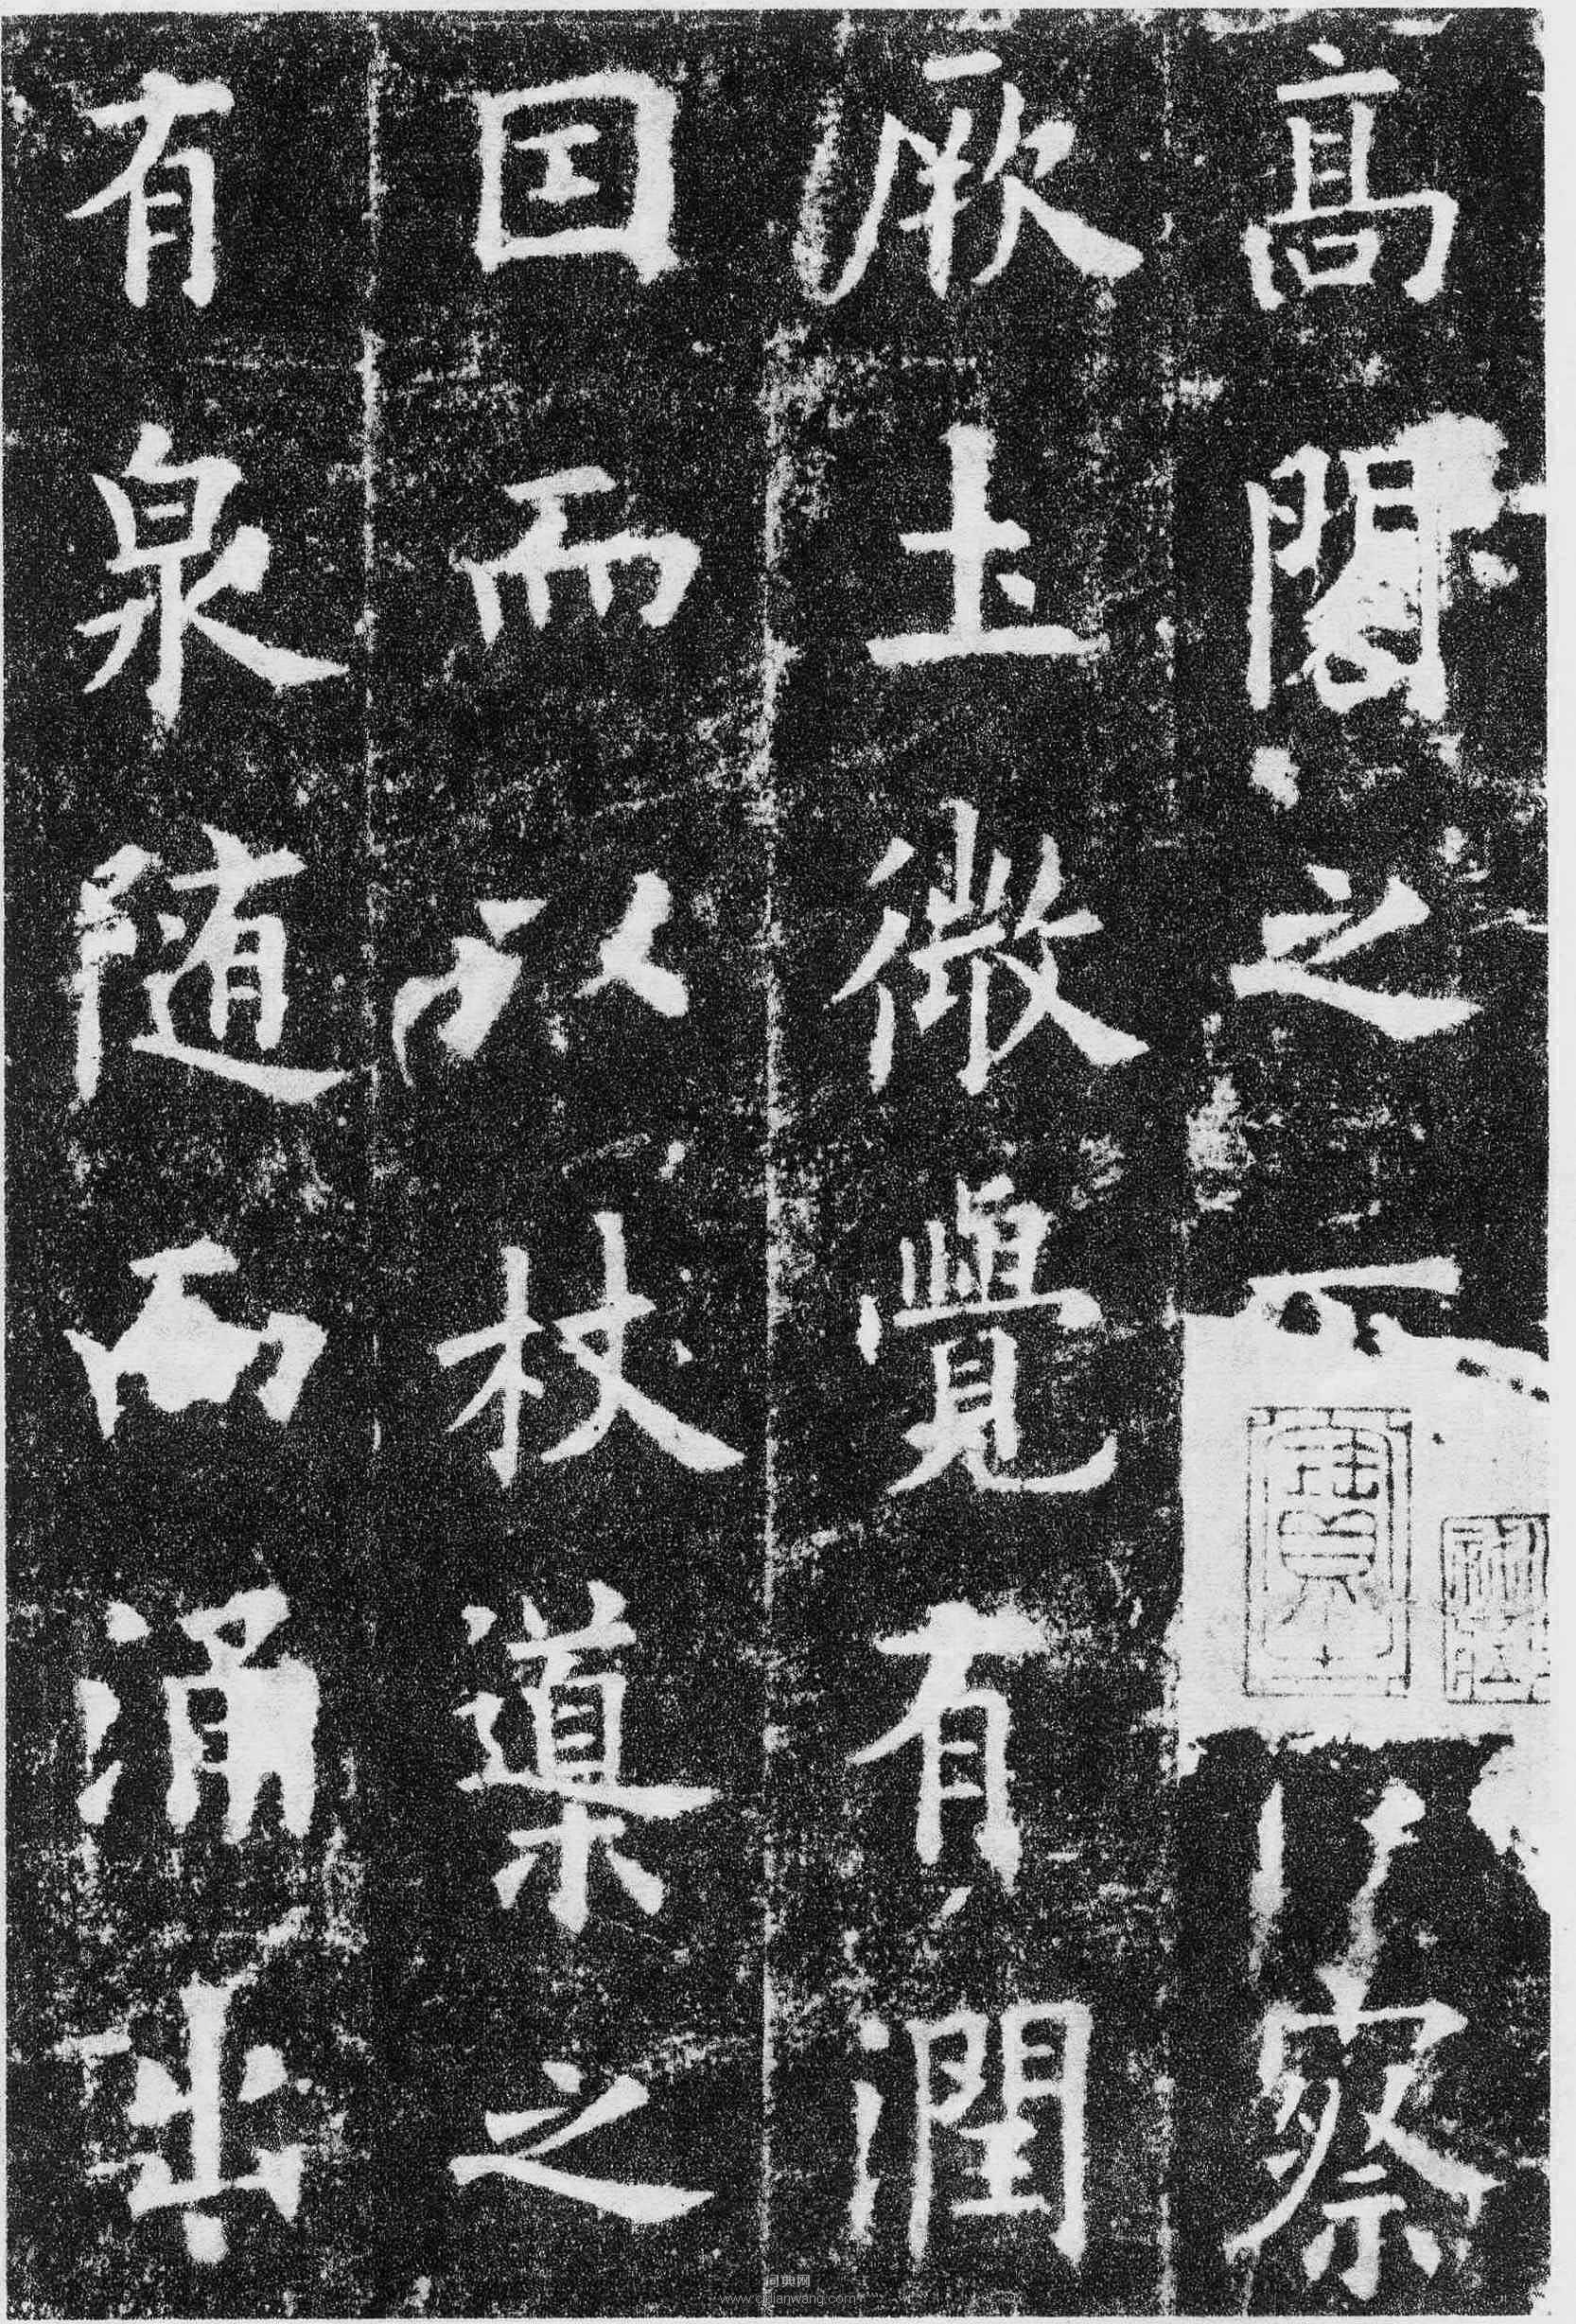 高閣之下俯察
厥土微覺有潤
囙而以杖導之
有泉随而涌出